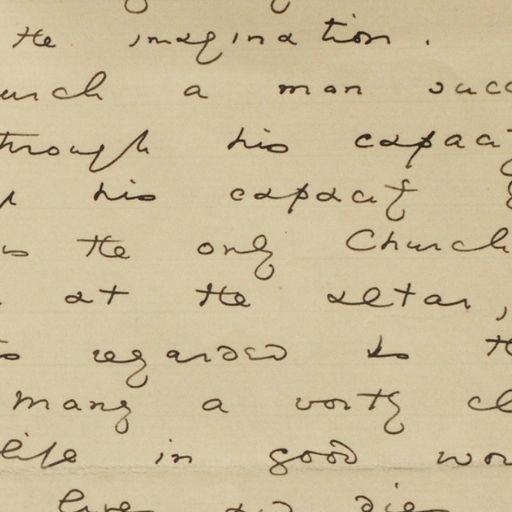 the imagination.
urch a man succ
through his capacit
his capacity
is the only Church
at the altar,
regarded as th
Many a worthy cl
life in good wor
lives and dies